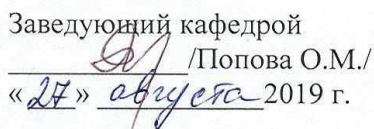 Заведующий кафедрой
/Попова О.М./
«27» августа 2019 г.